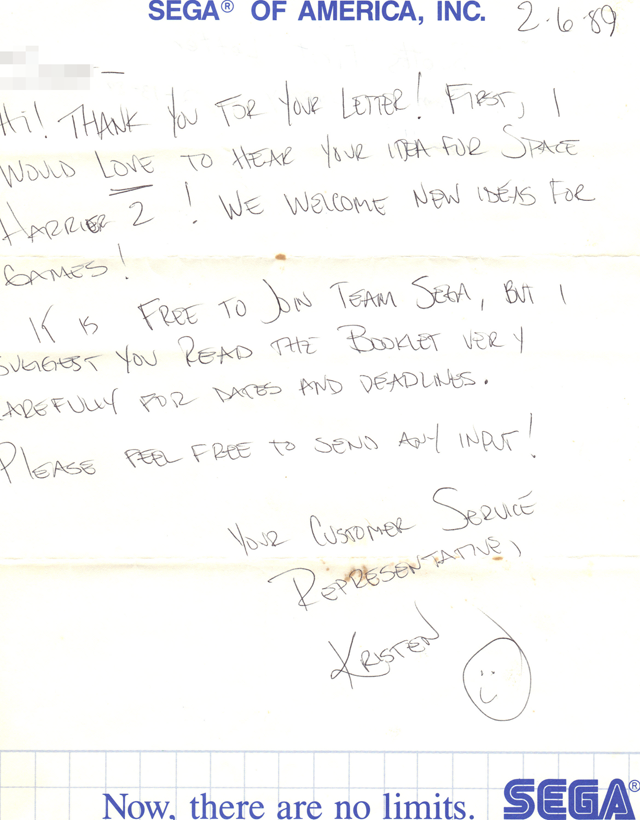 SEGA® OF AMERICA, INC. 2-6-89
Hi! THANK YOU FOR YOUR LETTER! FIRST, I
WOULD LOVE TO HEAR YOUR IDEA FOR SPACE
HARRIER 2! WE WELCOME NEW IDEAS FOR
GAMES!
IT IS FREE TO JOIN TEAM SEGA, BUT I
SUGGEST YOU READ THE BOOKLET VERY
CAREFULLY FOR DATES AND DEADLINES.
PLEASE FEEL FREE TO SEND ANY INPUT!
YOUR CUSTOMER SERVICE
REPRESENTATIVE,
KRISTEN
Now, there are no limits. SEGA®